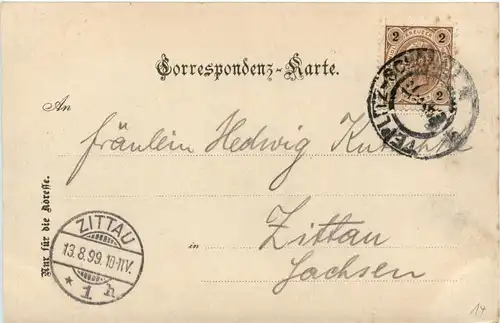 2 KREUZER 2
2 2
Correspondenz-Karte.
TEPLITZ-SCHÖNAU
An
Fräulein Hedwig
in Zittau
Sachsen
Nur für die Adresse.
ZITTAU
13.8.99.10-11V.
* 1 h
14